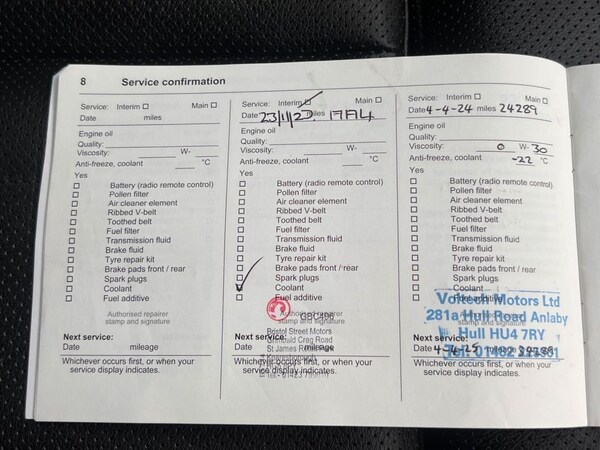 8 Service confirmation
Service: Interim Main
Date miles
Engine oil
Quality:
Viscosity: W-
Anti-freeze, coolant °C
Yes
Battery (radio remote control)
Pollen filter
Air cleaner element
Ribbed V-belt
Toothed belt
Fuel filter
Transmission fluid
Brake fluid
Tyre repair kit
Brake pads front / rear
Spark plugs
Coolant
Fuel additive
Authorised repairer
stamp and signature
Next service:
Date mileage
Whichever occurs first, or when your
service display indicates.
Service: Interim Main
Date miles
Engine oil
Quality:
Viscosity: W-
Anti-freeze, coolant °C
Yes
Battery (radio remote control)
Pollen filter
Air cleaner element
Ribbed V-belt
Toothed belt
Fuel filter
Transmission fluid
Brake fluid
Tyre repair kit
Brake pads front / rear
Spark plugs
Coolant
Fuel additive
Authorised repairer
stamp and signature
Bristol Street Motors
Grimbald Crag Road
St James
Next service:
Date mileage
Whichever occurs first, or when your
service display indicates.
Service: Interim Main
Date 4-4-24 miles 24289
Engine oil
Quality:
Viscosity: 0 W- 30
Anti-freeze, coolant -22 °C
Yes
Battery (radio remote control)
Pollen filter
Air cleaner element
Ribbed V-belt
Toothed belt
Fuel filter
Transmission fluid
Brake fluid
Tyre repair kit
Brake pads front / rear
Spark plugs
Coolant
Fuel additive
Motors Ltd
281a Hull Road Anlaby
Hull HU4 7RY
Authorised repairer
stamp and signature
Next service:
Date 4-4-25 mileage
Whichever occurs first, or when your
service display indicates.